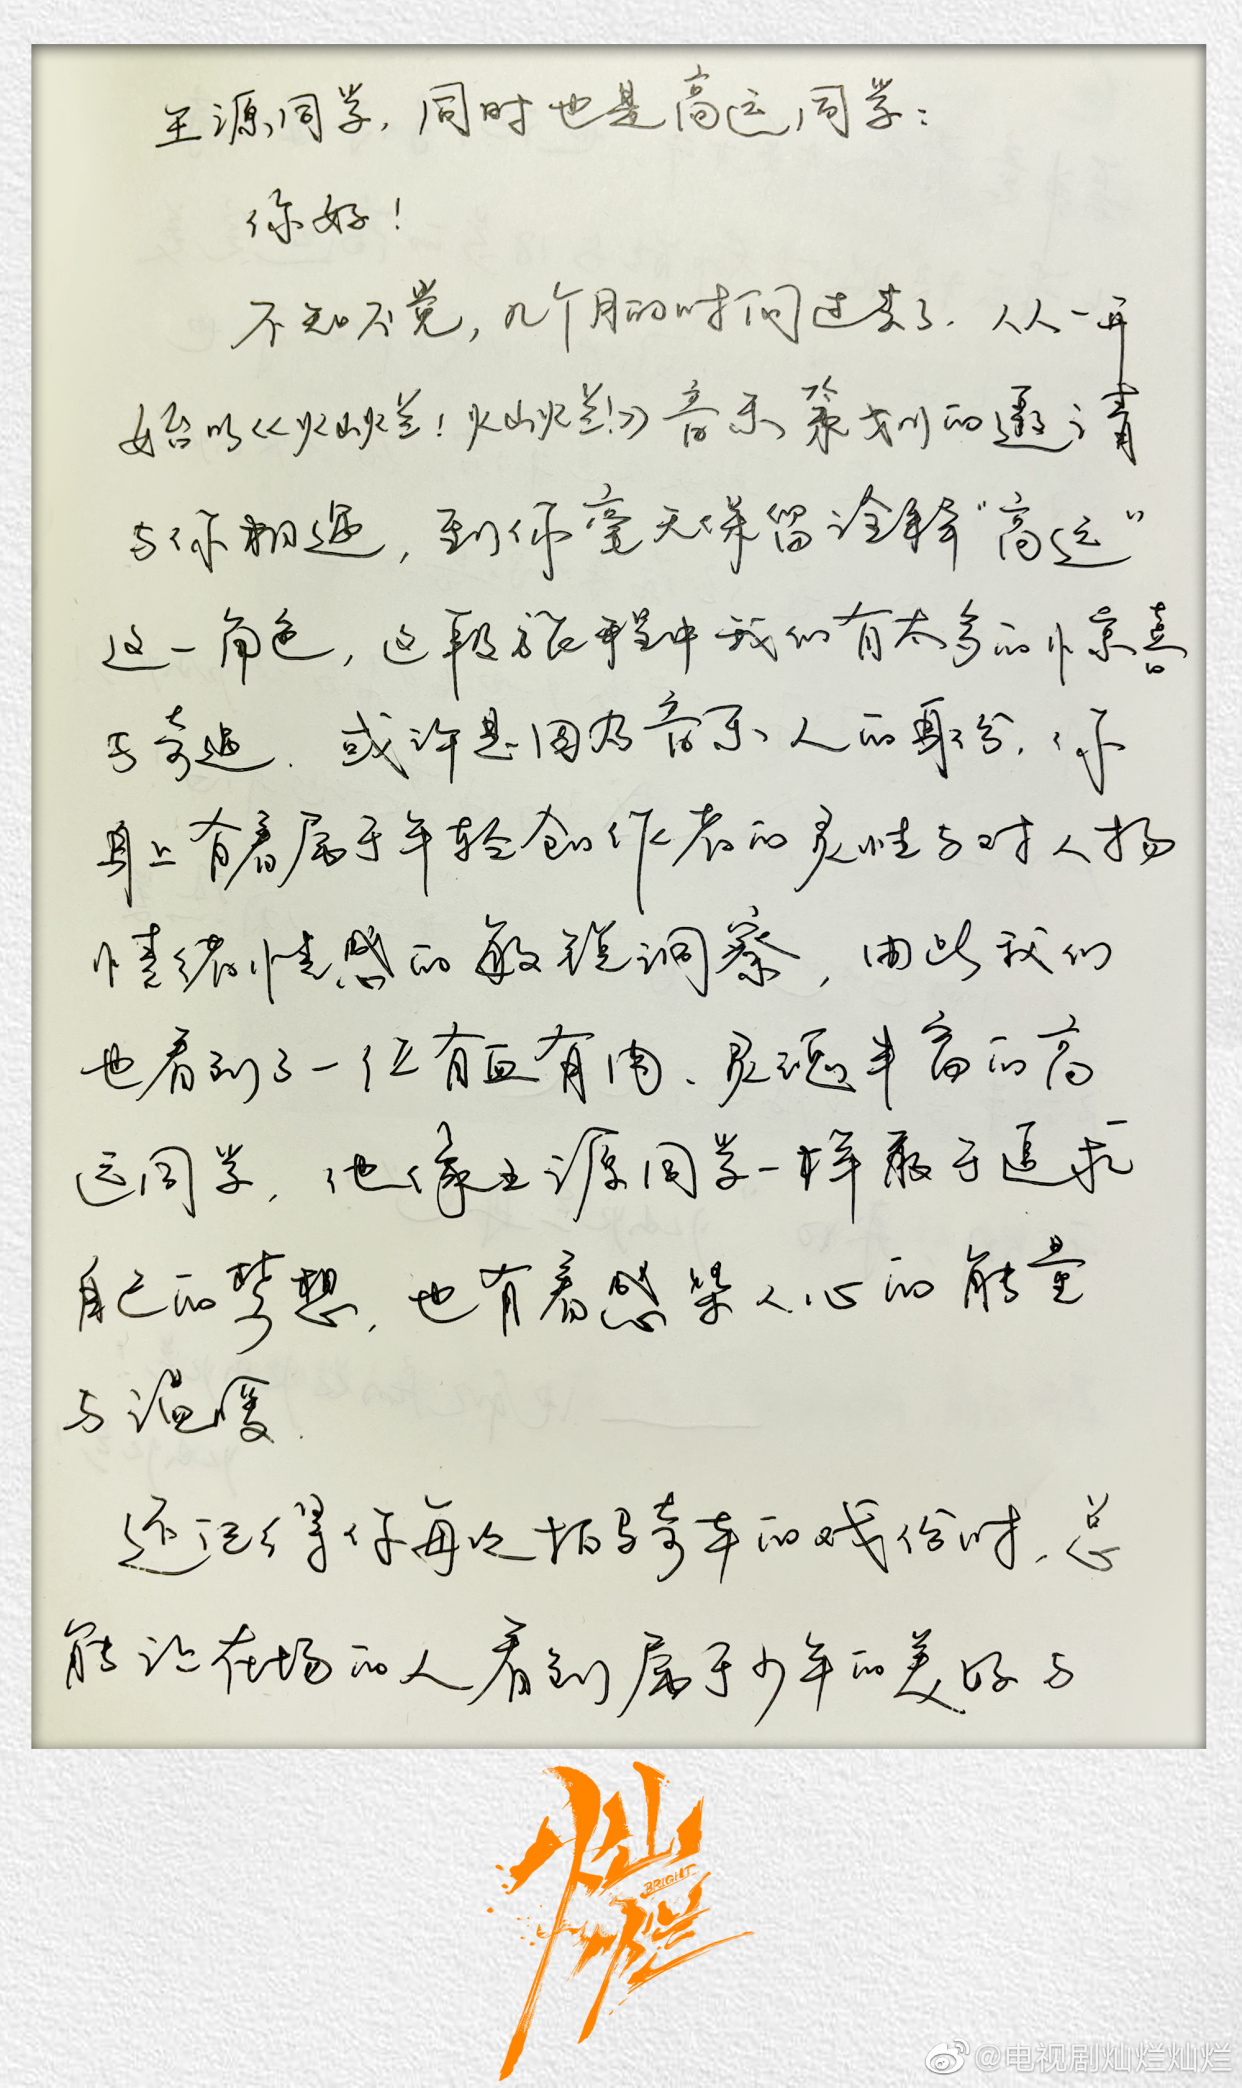 王源同学，同时也是高远同学：
你好！
不知不觉，几个月的时间过去了．从一开
始以《灿烂！灿烂！》音乐策划的邀请
与你相遇，到你毫无保留诠释“高远”
这一角色，这段旅程中我们有太多的惊喜
与奇遇．或许是因为音乐人的身份，你
身上有着属于年轻创作者的灵性与对人物
情绪情感的敏锐洞察，由此我们
也看到了一位有血有肉、灵魂丰富的高
远同学，他像王源同学一样敢于追求
自己的梦想，也有着感染人心的能量
与温暖．
还记得你每次拍骑车的戏份时，总
能让在场的人看到属于少年的美好与
灿烂
BRIGHT
@电视剧灿烂灿烂